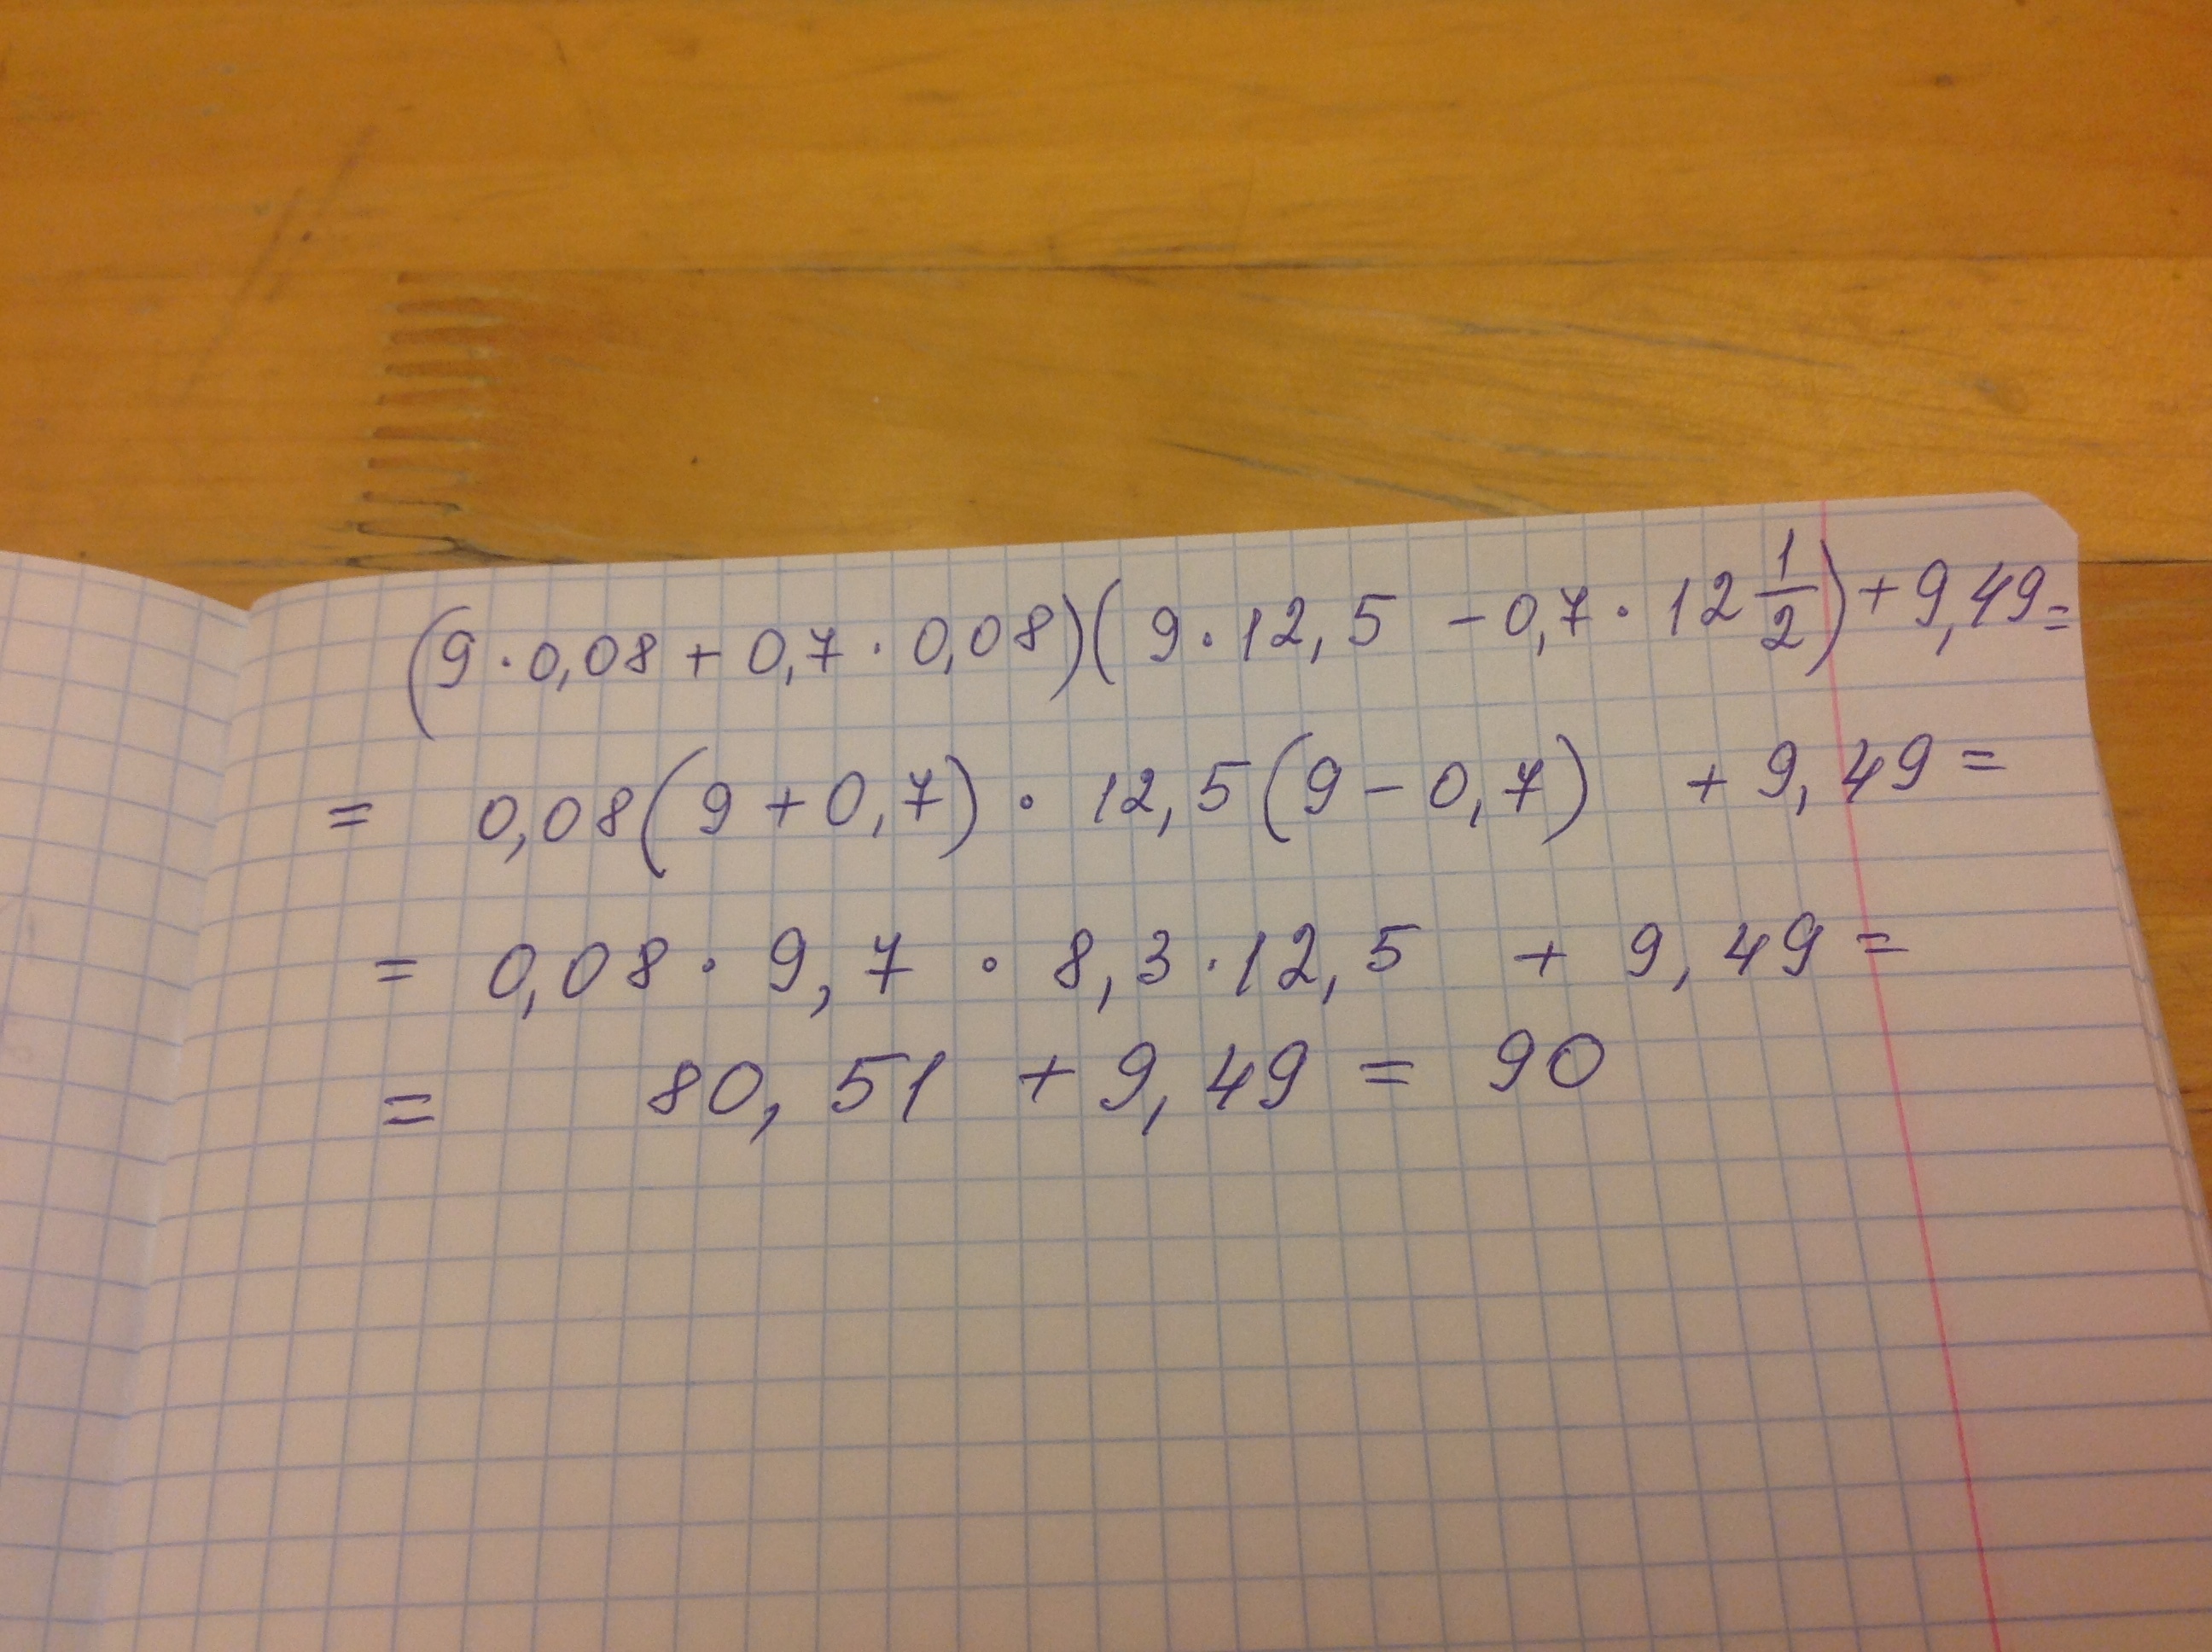 (9·0,08+0,7·0,08)(9·12,5-0,7·12 1/2)+9,49=
= 0,08(9+0,7)·12,5(9-0,7) +9,49=
= 0,08·9,7·8,3·12,5 + 9,49=
= 80,51 +9,49 = 90